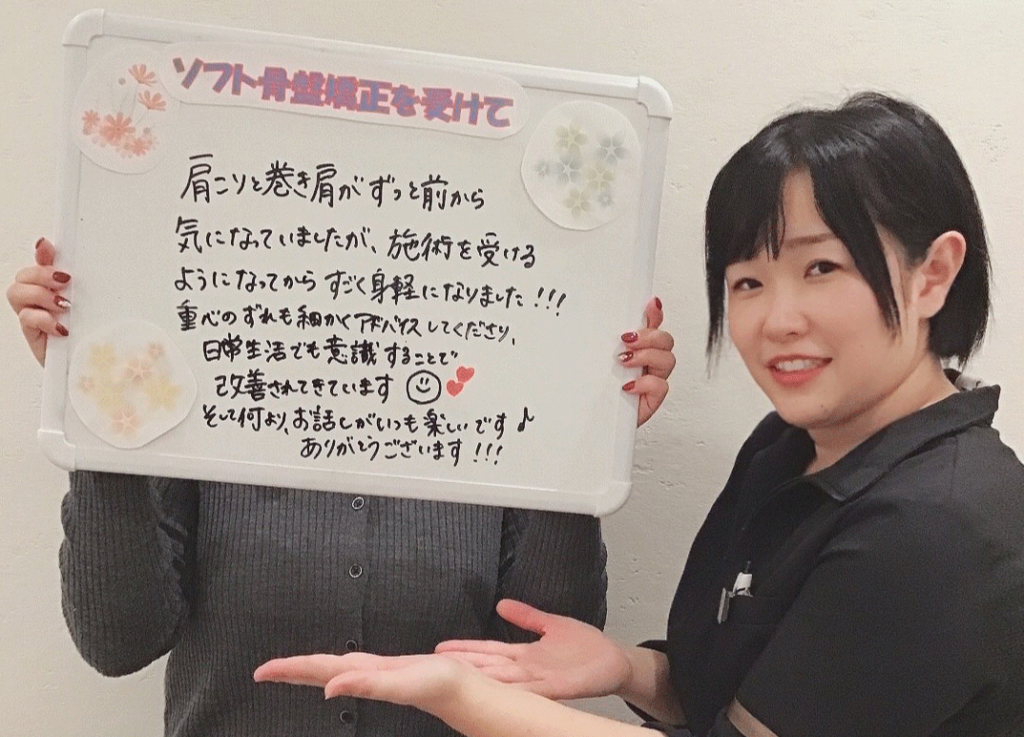 ソフト骨盤矯正を受けて
肩こりと巻き肩がずっと前から
気になっていましたが、施術を受ける
ようになってからすごく身軽になりました!!!
重心のずれも細かくアドバイスしてくださり、
日常生活でも意識することで
改善されてきています
そして何より、お話しがいつも楽しいです♪
ありがとうございます!!!